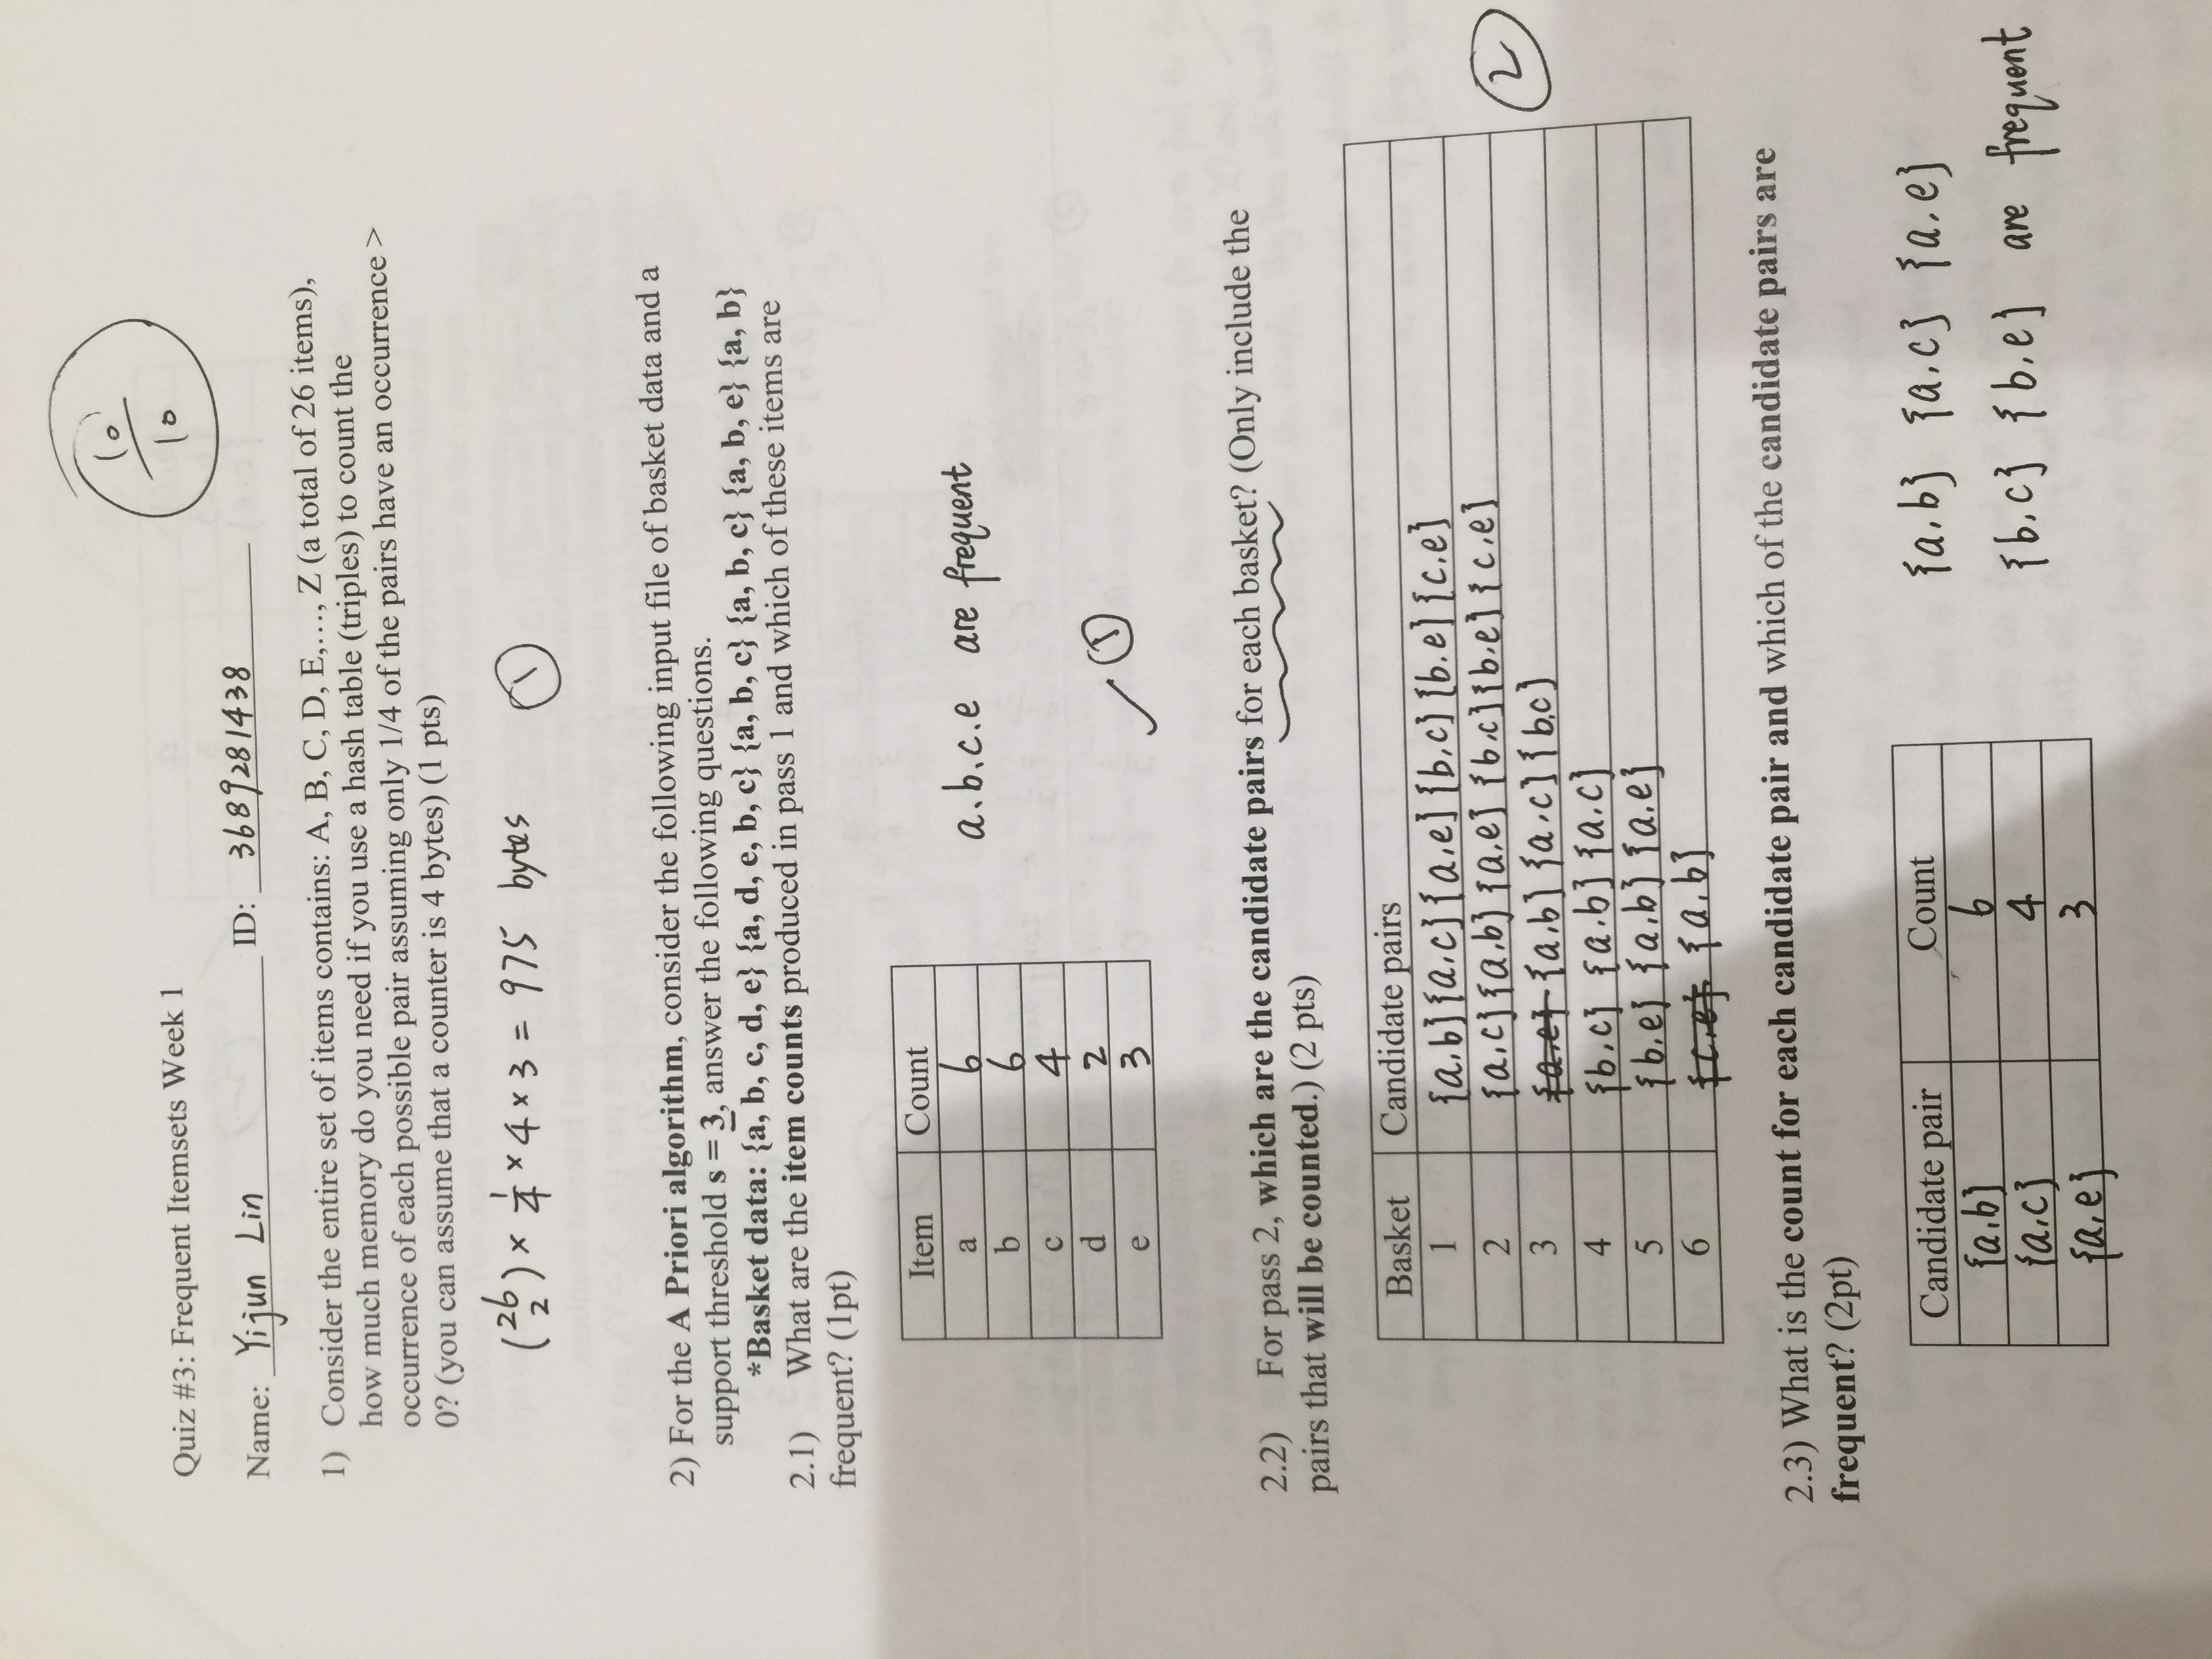 10
10
Quiz #3: Frequent Itemsets Week 1
Name: Yijun Lin ID: 3689281438
1) Consider the entire set of items contains: A, B, C, D, E,…, Z (a total of 26 items),
how much memory do you need if you use a hash table (triples) to count the
occurrence of each possible pair assuming only 1/4 of the pairs have an occurrence >
0? (you can assume that a counter is 4 bytes) (1 pts)
(26 2) × 1/4 × 4 × 3 = 975 bytes 1
2) For the A Priori algorithm, consider the following input file of basket data and a
support threshold s = 3, answer the following questions.
*Basket data: {a, b, c, d, e} {a, d, e, b, c} {a, b, c} {a, b, c} {a, b, e} {a, b}
2.1) What are the item counts produced in pass 1 and which of these items are
frequent? (1pt)
Item Count
a 6
b 6
c 4
d 2
e 3
a.b.c.e are frequent
✓ 1
2.2) For pass 2, which are the candidate pairs for each basket? (Only include the
pairs that will be counted.) (2 pts)
Basket Candidate pairs
1 {a,b} {a,c} {a,e} {b,c} {b,e} {c,e}
2 {a,c} {a,b} {a,e} {b,c} {b,e} {c,e}
3 {a,e} {a,b} {a,c} {b,c}
4 {b,c} {a,b} {a,c}
5 {b,e} {a,b} {a,e}
6 {c,e} {a,b}
2
2.3) What is the count for each candidate pair and which of the candidate pairs are
frequent? (2pt)
Candidate pair Count
{a,b} 6
{a,c} 4
{a,e} 3
{a,b} {a,c} {a,e}
{b,c} {b,e} are frequent